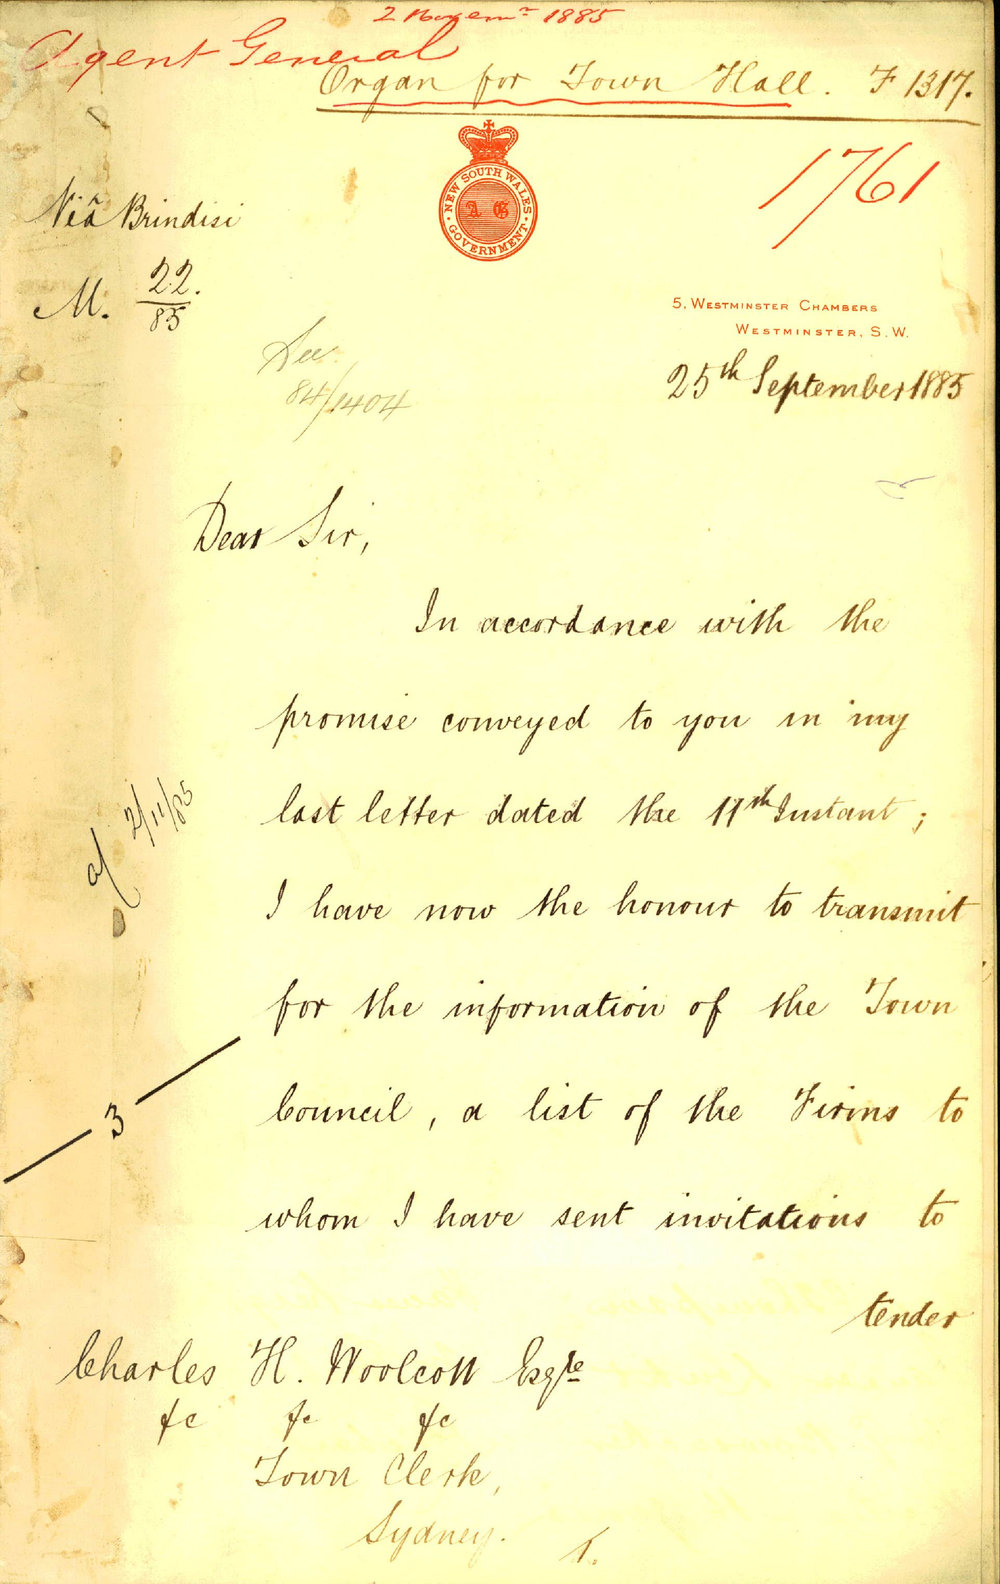 2 Novemr 1885
Agent General
Organ for Town Hall. F 1317.
1761
NEW SOUTH WALES
A G
GOVERNMENT
Viâ Brindisi
M. 22./85
5, WESTMINSTER CHAMBERS
WESTMINSTER, S.W.
See
84/1404
25th September 1885
Dear Sir,
In accordance with the
promise conveyed to you in my
last letter dated the 11th Instant;
I have now the honour to transmit
for the information of the Town
Council, a list of the Firms to
whom I have sent invitations to
tender
2/11/85
3
Charles H. Woolcott Esqre
&c &c &c
Town Clerk,
Sydney.